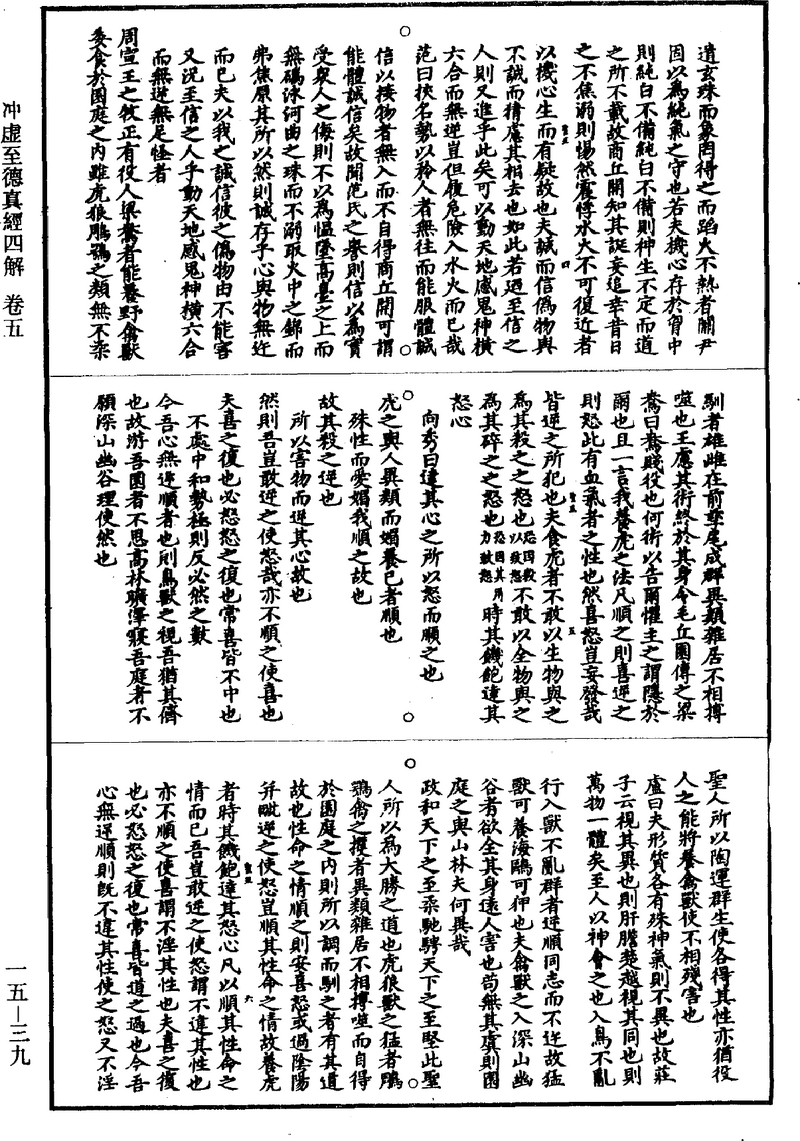 遺玄珠而象罔得之而蹈火不熱者關尹
因以為純氣之守也若夫機心存於胷中
則純白不備純白不備則神生不定而道
之所不載故商丘開知其誕妄追幸昔日
之不焦溺則惕然震悸水火不可復近者
以機心生而有疑故也夫誠而信偽物與
不誠而猜慮其相去也如此若迺至信之
人則又進乎此矣可以動天地感鬼神橫
六合而無逆豈但履危險入水火而已哉
范曰挾名勢以矜人者無往而能服體誠
信以接物者無入而不自得商丘開可謂
能體誠信矣故聞范氏之譽則信以為實
受衆人之侮則不以為慍墜高臺之上而
無䃣泳河曲之珠而不溺取火中之錦而
弗焦原其所以然則誠存乎心與物無迕
而已夫以我之誠信彼之偽物由不能害
又況至信之人乎動天地感鬼神橫六合
而無逆無足怪者
周宣王之牧正有役人梁鴦者能養野禽獸
委食於園庭之內雖虎狼鵰鶚之類無不柔
馴者雄雌在前孳尾成群異類雜居不相搏
噬也王慮其術終於其身令毛丘園傳之梁
鴦曰鴦賤役也何術以告爾懼王之謂隱於
爾也且一言我養虎之法凡順之則喜逆之
則怒此有血氣者之性也然喜怒豈妄發哉
皆逆之所犯也夫食虎者不敢以生物與之
為其殺之之怒也恐因殺以致怒不敢以全物與之
為其碎之之怒也恐因其用力致怒時其饑飽達其
怒心
向秀曰達其心之所以怒而順之也
虎之與人異類而媚養己者順也
殊性而愛媚我順之故也
故其殺之逆也
所以害物而逆其心故也
然則吾豈敢逆之使怒哉亦不順之使喜也
夫喜之復也必怒怒之復也常喜皆不中也
不處中和勢極則反必然之數
今吾心無逆順者也則鳥獸之視吾猶其儕
也故游吾園者不思高林曠澤寢吾庭者不
願深山幽谷理使然也
聖人所以陶運群生使各得其性亦猶役
人之能將養禽獸使不相殘害也
盧曰夫形質各有殊神氣則不異也故莊
子云視其異也則肝膽楚越視其同也則
萬物一體矣至人以神會之也入鳥不亂
行入獸不亂群者逆順同志而不逆故猛
獸可養海鷗可狎也夫禽獸之入深山幽
谷者欲全其身遠人害也苟無其虞則園
庭之與山林夫何異哉
政和天下之至柔馳騁天下之至堅此聖
人所以為大勝之道也虎狼獸之猛者鵰
鶚禽之攫者異類雜居不相搏噬而自得
於園庭之內則所以調而馴之者有其道
故也性命之情順之則安喜怒或過陰陽
并毗逆之使怒豈順其性命之情故養虎
者時其饑飽達其怒心凡以順其性命之
情而已吾豈敢逆之使怒謂不違其性也
亦不順之使喜謂不淫其性也夫喜之復
也必怒怒之復也常喜皆道之過也今吾
心無逆順則既不違其性使之怒又不淫
冲虛至德真經四解 卷五
一五—三九